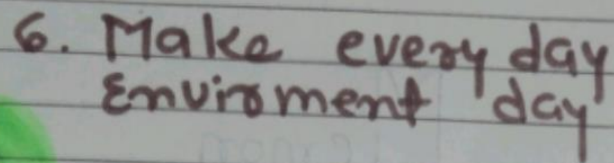 6. Make every day
Enviroment day